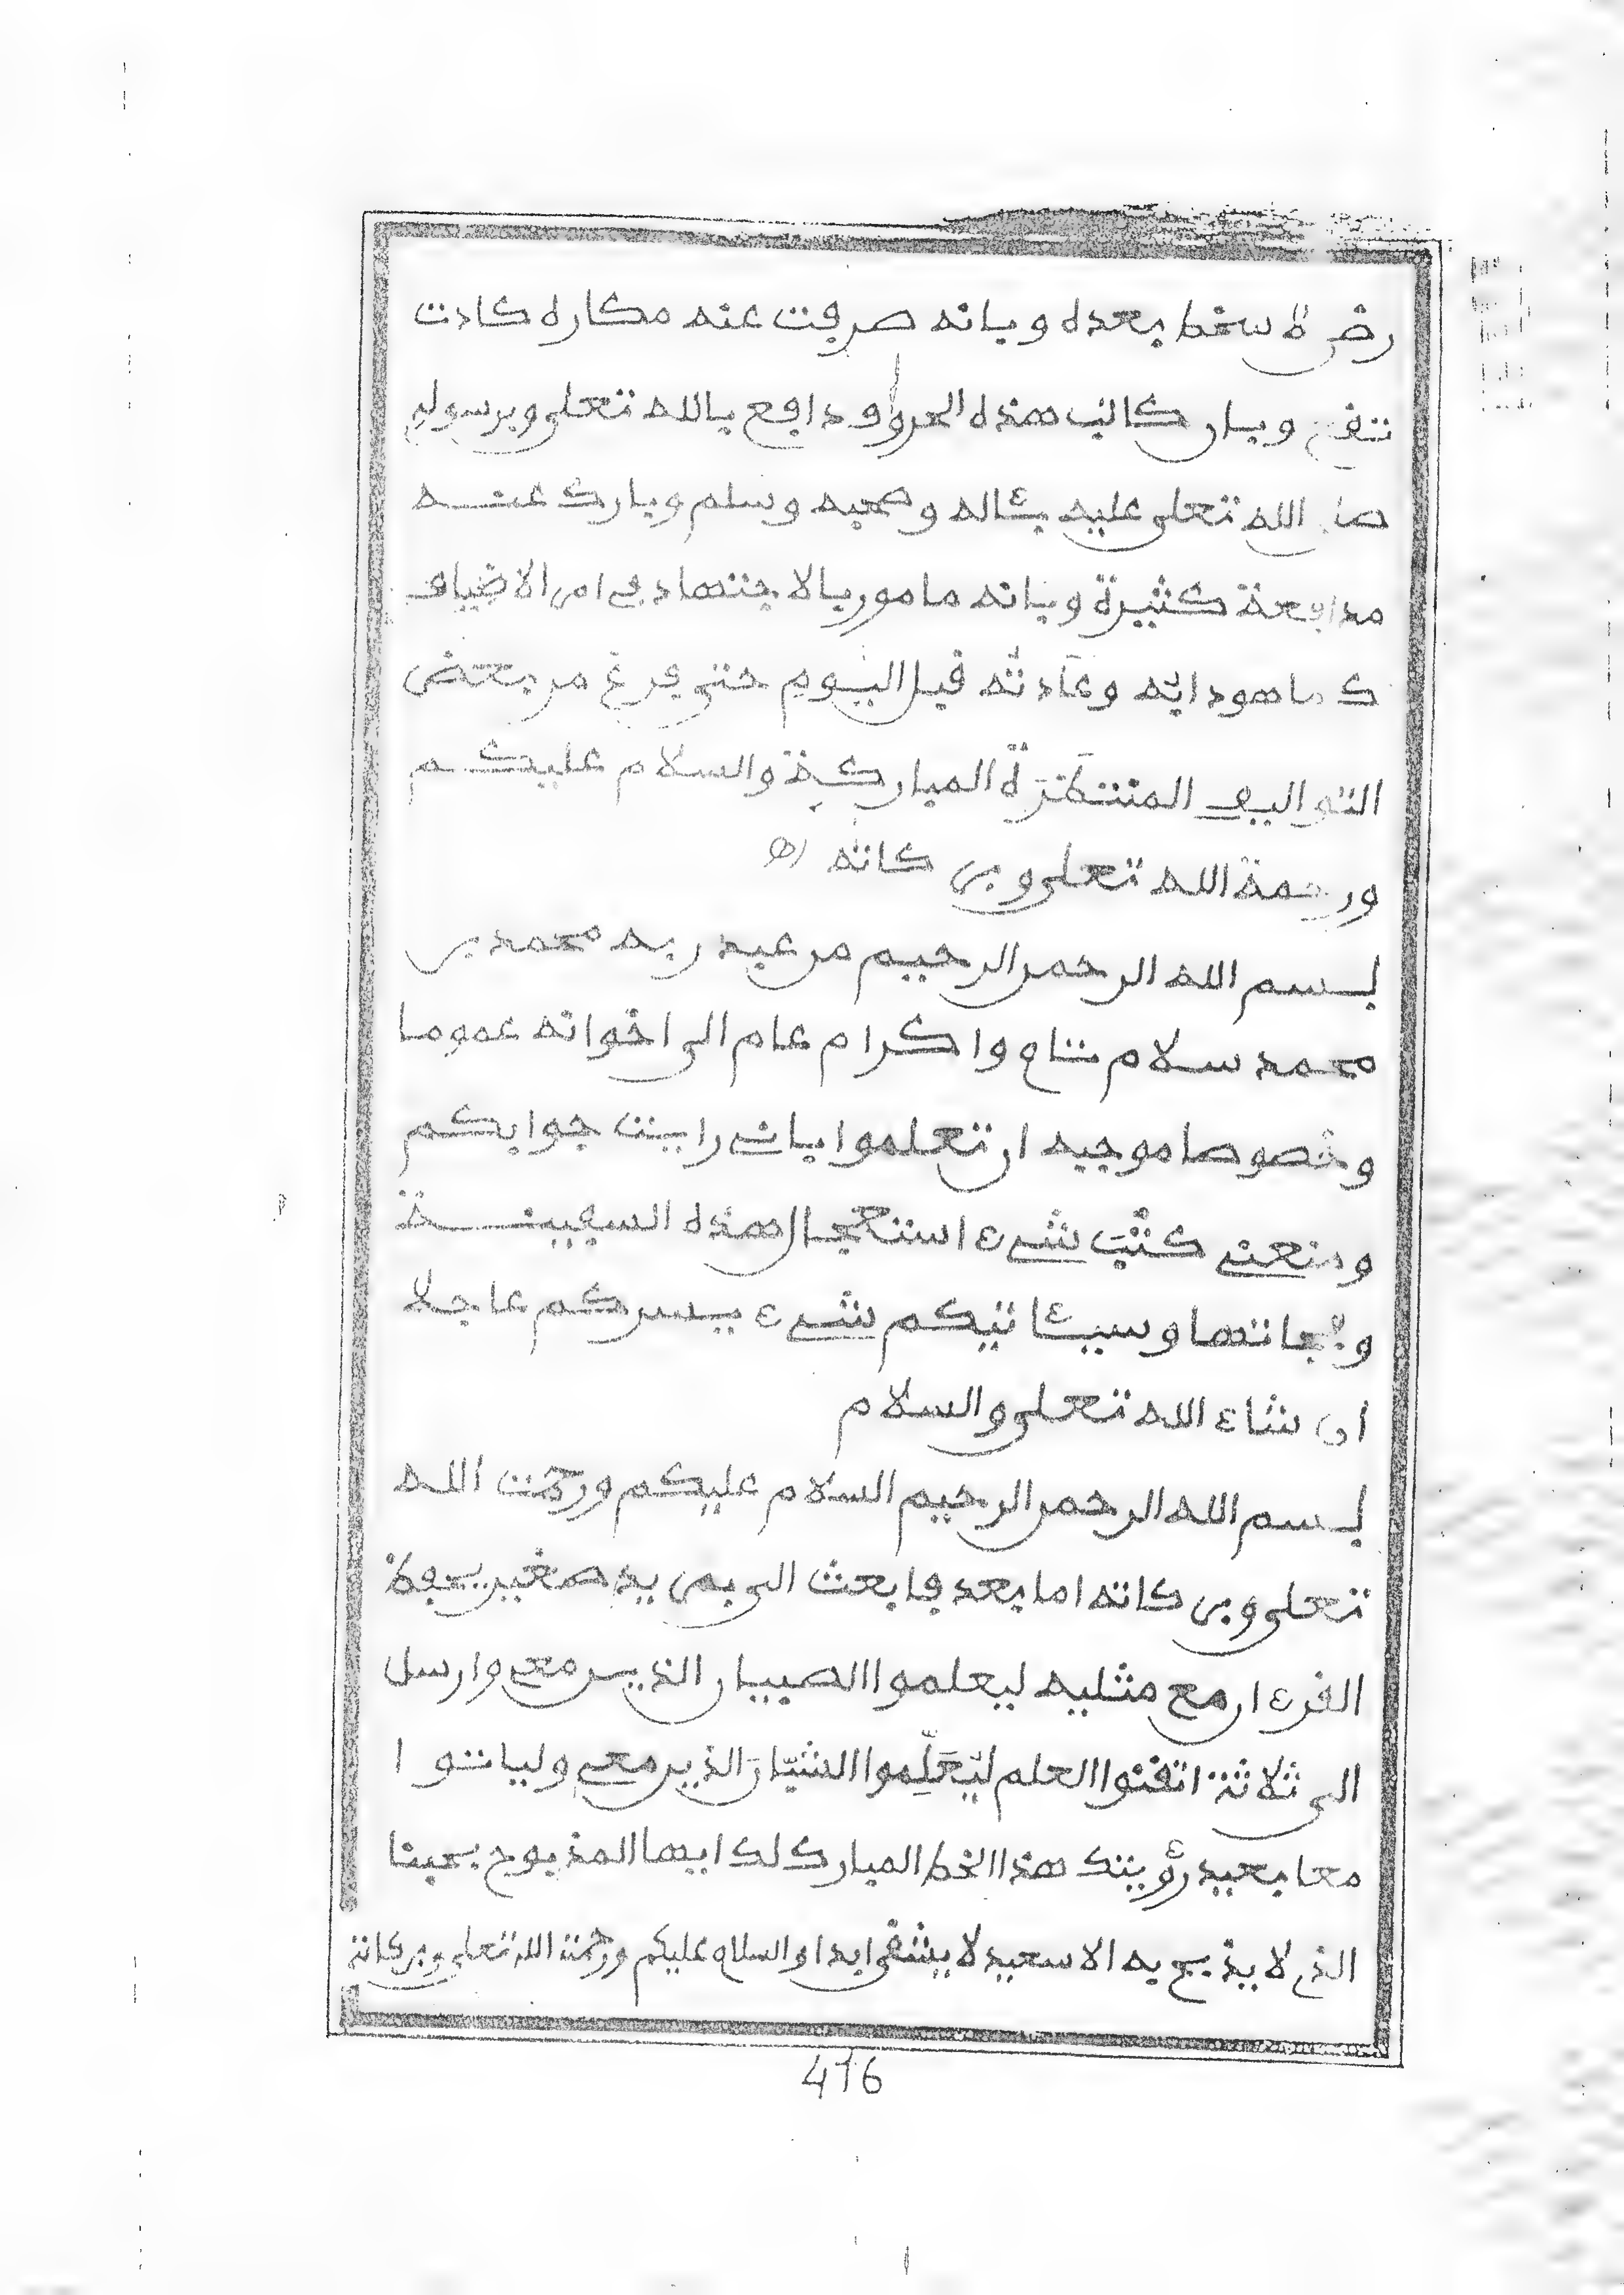 رضى لا سخط بعده وبانه صرفت عنه مكاره كادت
تقع وبان كاتب هذه الحروف دافع بالله تعلى وبرسوله
صلى الله تعلى عليه بئاله وصحبه وسلم وبارك عنه
مدافعة كثيرة وبانه مامور بالاجتهاد في امر الاضياف
كما هو دابه وعادته قبل اليوم حتى يفرغ من بعض
التواليف المنتظرة المباركة والسلام عليكم
ورحمة الله تعلى وبركاته اهـ
بسم الله الرحمن الرحيم من عبد ربه محمد بن
محمد سلام تام واكرام عام الى اخوانه عموما
وخصوصا موجبه ان تعلموا بانى رايت جوابكم
ومنعنى كتب شىء استعجال هذه السفينة
وفجاتها وسيئاتيكم شىء يسركم عاجلا
ان شاء الله تعلى والسلام
بسم الله الرحمن الرحيم السلام عليكم ورحمت الله
تعلى وبركاته اما بعد فابعث الى بمريد صغير يحفظ
القرءان مع مثليه ليعلموا الصبيان الذين معى وارسل
الى ثلاثة اتقنوا العلم ليعلموا الشبان الذين معى ولياتوا
معا بعيد رؤيتك هذا الخط المبارك لك ايها المذبوح بحبنا
الذى لا يذبح به الا سعيد لا يشقى ابدا والسلام عليكم ورحمة الله تعلى وبركاته
476